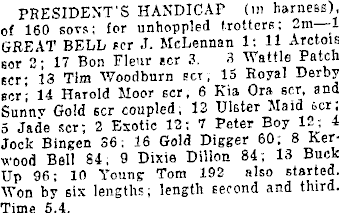 PRESIDENT'S HANDICAP (in harness),
of 160 sovs; for unhoppled trotters; 2m—1
GREAT BELL scr J. McLennan 1; 11 Arctois
scr 2; 17 Bon Fleur scr 3. 3 Wattle Patch
scr; 18 Tim Woodburn scr, 15 Royal Derby
scr; 14 Harold Moor scr, 6 Kia Ora scr, and
Sunny Gold scr coupled; 12 Ulster Maid scr;
5 Jade scr; 2 Exotic 12; 7 Peter Boy 12; 4
Jock Bingen 36; 16 Gold Digger 60; 8 Ker-
wood Bell 84, 9 Dixie Dillon 84; 13 Buck
Up 96; 10 Young Tom 192 also started.
Won by six lengths; length second and third.
Time 5.4.